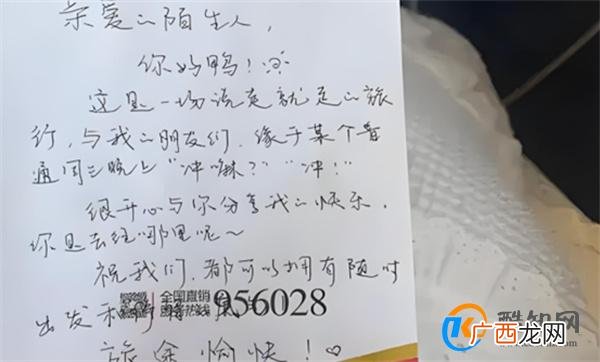 亲爱的陌生人，
你好鸭！
这是一场说走就走的旅
行，与我的朋友们，缘于某个普
通周三晚上“冲嘛？”“冲！”
很开心与你分享我的快乐，
你是去往哪里呢～
祝我们，都可以拥有随时
出发和
全国直销
团务热线
956028
旅途愉快！♡
酷知网
广西龙网